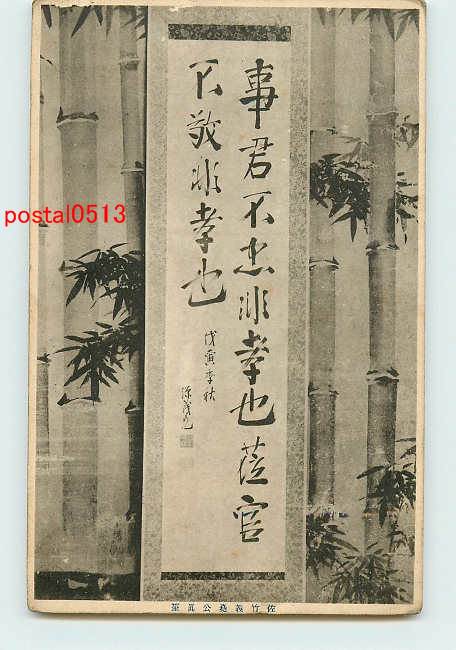 事君不忠非孝也莅官
不敬非孝也
戊寅季秋
源義堯
佐竹義堯公眞筆
postal0513